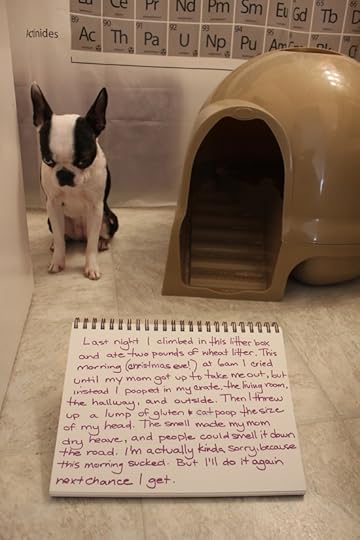 La Ce Pr Nd Pm Sm Gd Tb
Actinides
89 90 91 92 93 94
Ac Th Pa U Np Pu Am
Last night I climbed in this litter box
and ate two pounds of wheat litter. This
morning (christmas eve!) at 6am I cried
until my mom got up to take me out, but
instead I pooped in my crate, the living room,
the hallway, and outside. Then I threw
up a lump of gluten & cat poop the size
of my head. The smell made my mom
dry heave, and people could smell it down
the road. I'm actually kinda sorry, because
this morning sucked. But I'll do it again
next chance I get.